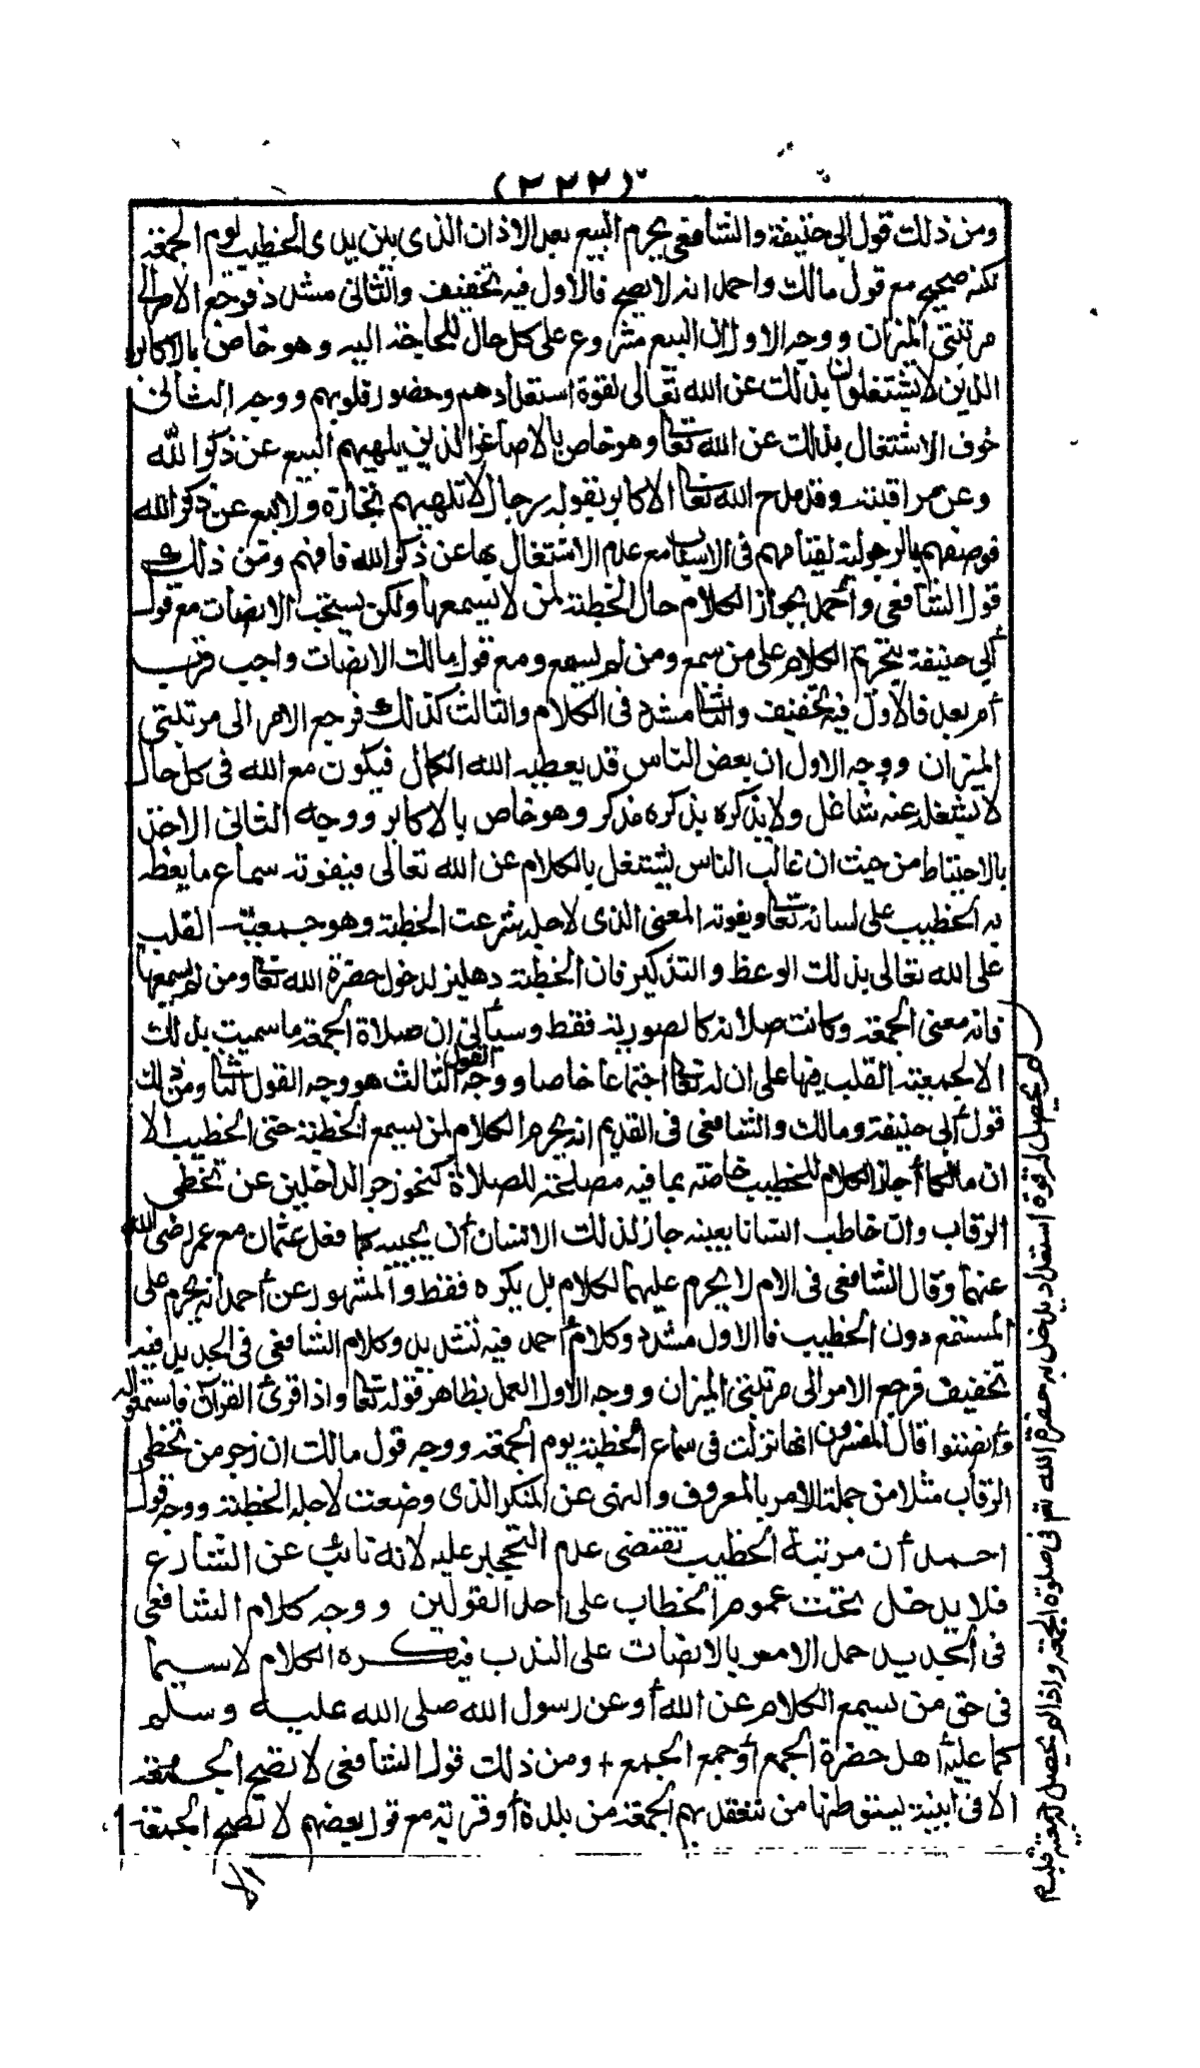 (٢٢٢)
ومن ذلك قول أبي حنيفة والشافعي يحرم البيع بعد الاذان الذي بين يدي الخطيب يوم الجمعة
لكنه صحيح مع قول مالك واحمد انه لا يصح فالاول فيه تخفيف والثاني مشدد فرجع الامر الى
مرتبتي الميزان ووجه الاول ان البيع مشروع على كل حال للحاجة اليه وهو خاص بالاكابر
الذين لا يشتغلون بذلك عن الله تعالى لقوة استعدادهم وحضور قلوبهم ووجه الثاني
خوف الاشتغال بذلك عن الله تعا وهو خاص بالاصاغر الذين يلهيهم البيع عن ذكر الله
وعن مراقبته وقد مدح الله تعا الاكابر بقوله رجال لا تلهيهم تجارة ولا بيع عن ذكر الله
فوصفهم بالرجولية لقيامهم في الاسباب مع عدم الاشتغال بها عن ذكر الله فافهم ومن ذلك
قول الشافعي وأحمد بجواز الكلام حال الخطبة لمن لا يسمعها ولكن يستحب الانصات مع قول
أبي حنيفة بتحريم الكلام على من سمع ومن لم يسمع ومع قول مالك الانصات واجب قرب
أم بعد فالاول فيه تخفيف والثا مشدد في الكلام والثالث كذلك فرجع الامر الى مرتبتي
الميزان ووجه الاول ان بعض الناس قد يعطيه الله الكمال فيكون مع الله في كل حال
لا يشغله عنه شاغل ولا يذكره بذكره مذكر وهو خاص بالاكابر ووجه الثاني الاخذ
بالاحتياط من حيث ان غالب الناس يشتغل بالكلام عن الله تعالى فيفوته سماع ما يعظه
به الخطيب على لسانه تعا ويفوته المعنى الذي لاجله شرعت الخطبة وهو جمعية القلب
على الله تعالى بذلك الوعظ والتذكير فان الخطبة دهليز لدخول حضرة الله تعا ومن لم يسمعها
فاته معنى الجمعة وكانت صلاته كالصورية فقط وسيأتي ان صلاة الجمعة ما سميت بذلك
الا لجمعية القلب فيها على ان له تعا اجتماعا خاصا ووجه القول الثالث هو وجه القول الثا ومن ذلك
قول أبي حنيفة ومالك والشافعي في القديم انه يحرم الكلام لمن يسمع الخطبة حتى الخطيب الا
ان مالكا أجاز الكلام للخطيب خاصة بما فيه مصلحة للصلاة كنحو زجر الداخلين عن تخطي
الرقاب وان خاطب انسانا بعينه جاز لذلك الانسان أن يجيبه كما فعل عثمان مع عمر رضى الله
عنهما وقال الشافعي في الام لا يحرم عليهما الكلام بل يكره فقط والمشهور عن أحمد انه يحرم على
المستمع دون الخطيب فالاول مشدد وكلام أحمد فيه تشديد وكلام الشافعي في الجديد فيه
تخفيف فرجع الامر الى مرتبتي الميزان ووجه الاول العمل بظاهر قوله تعا واذا قرئ القرآن فاستمعوا له
وأنصتوا قال المفسرون انها نزلت في سماع الخطبة يوم الجمعة ووجه قول مالك ان زجر من تخطى
الرقاب مثلا من جملة الامر بالمعروف والنهى عن المنكر الذي وضعت لاجله الخطبة ووجه قول
احمد أن مرتبة الخطيب تقتضى عدم التحجير عليه لانه نائب عن الشارع
فلا يدخل تحت عموم الخطاب على احد القولين ووجه كلام الشافعي
في الجديد حمل الامر بالانصات على الندب فيكره الكلام لا سيما
في حق من يسمع الكلام عن الله أو عن رسول الله صلى الله عليه وسلم
كما عليه أهل حضرة الجمع أو جمع الجمع + ومن ذلك قول الشافعي لا تصح الجمعة
الا في أبنية يستوطنها من تنعقد بهم الجمعة من بلدة أو قرية مع قول بعضهم لا تصح الجمعة
الا
لم يحصل له قوة استعداد يدخل به حضرة الله تعا في صلوة الجمعة واذا لم يحصل جمعية قلبه